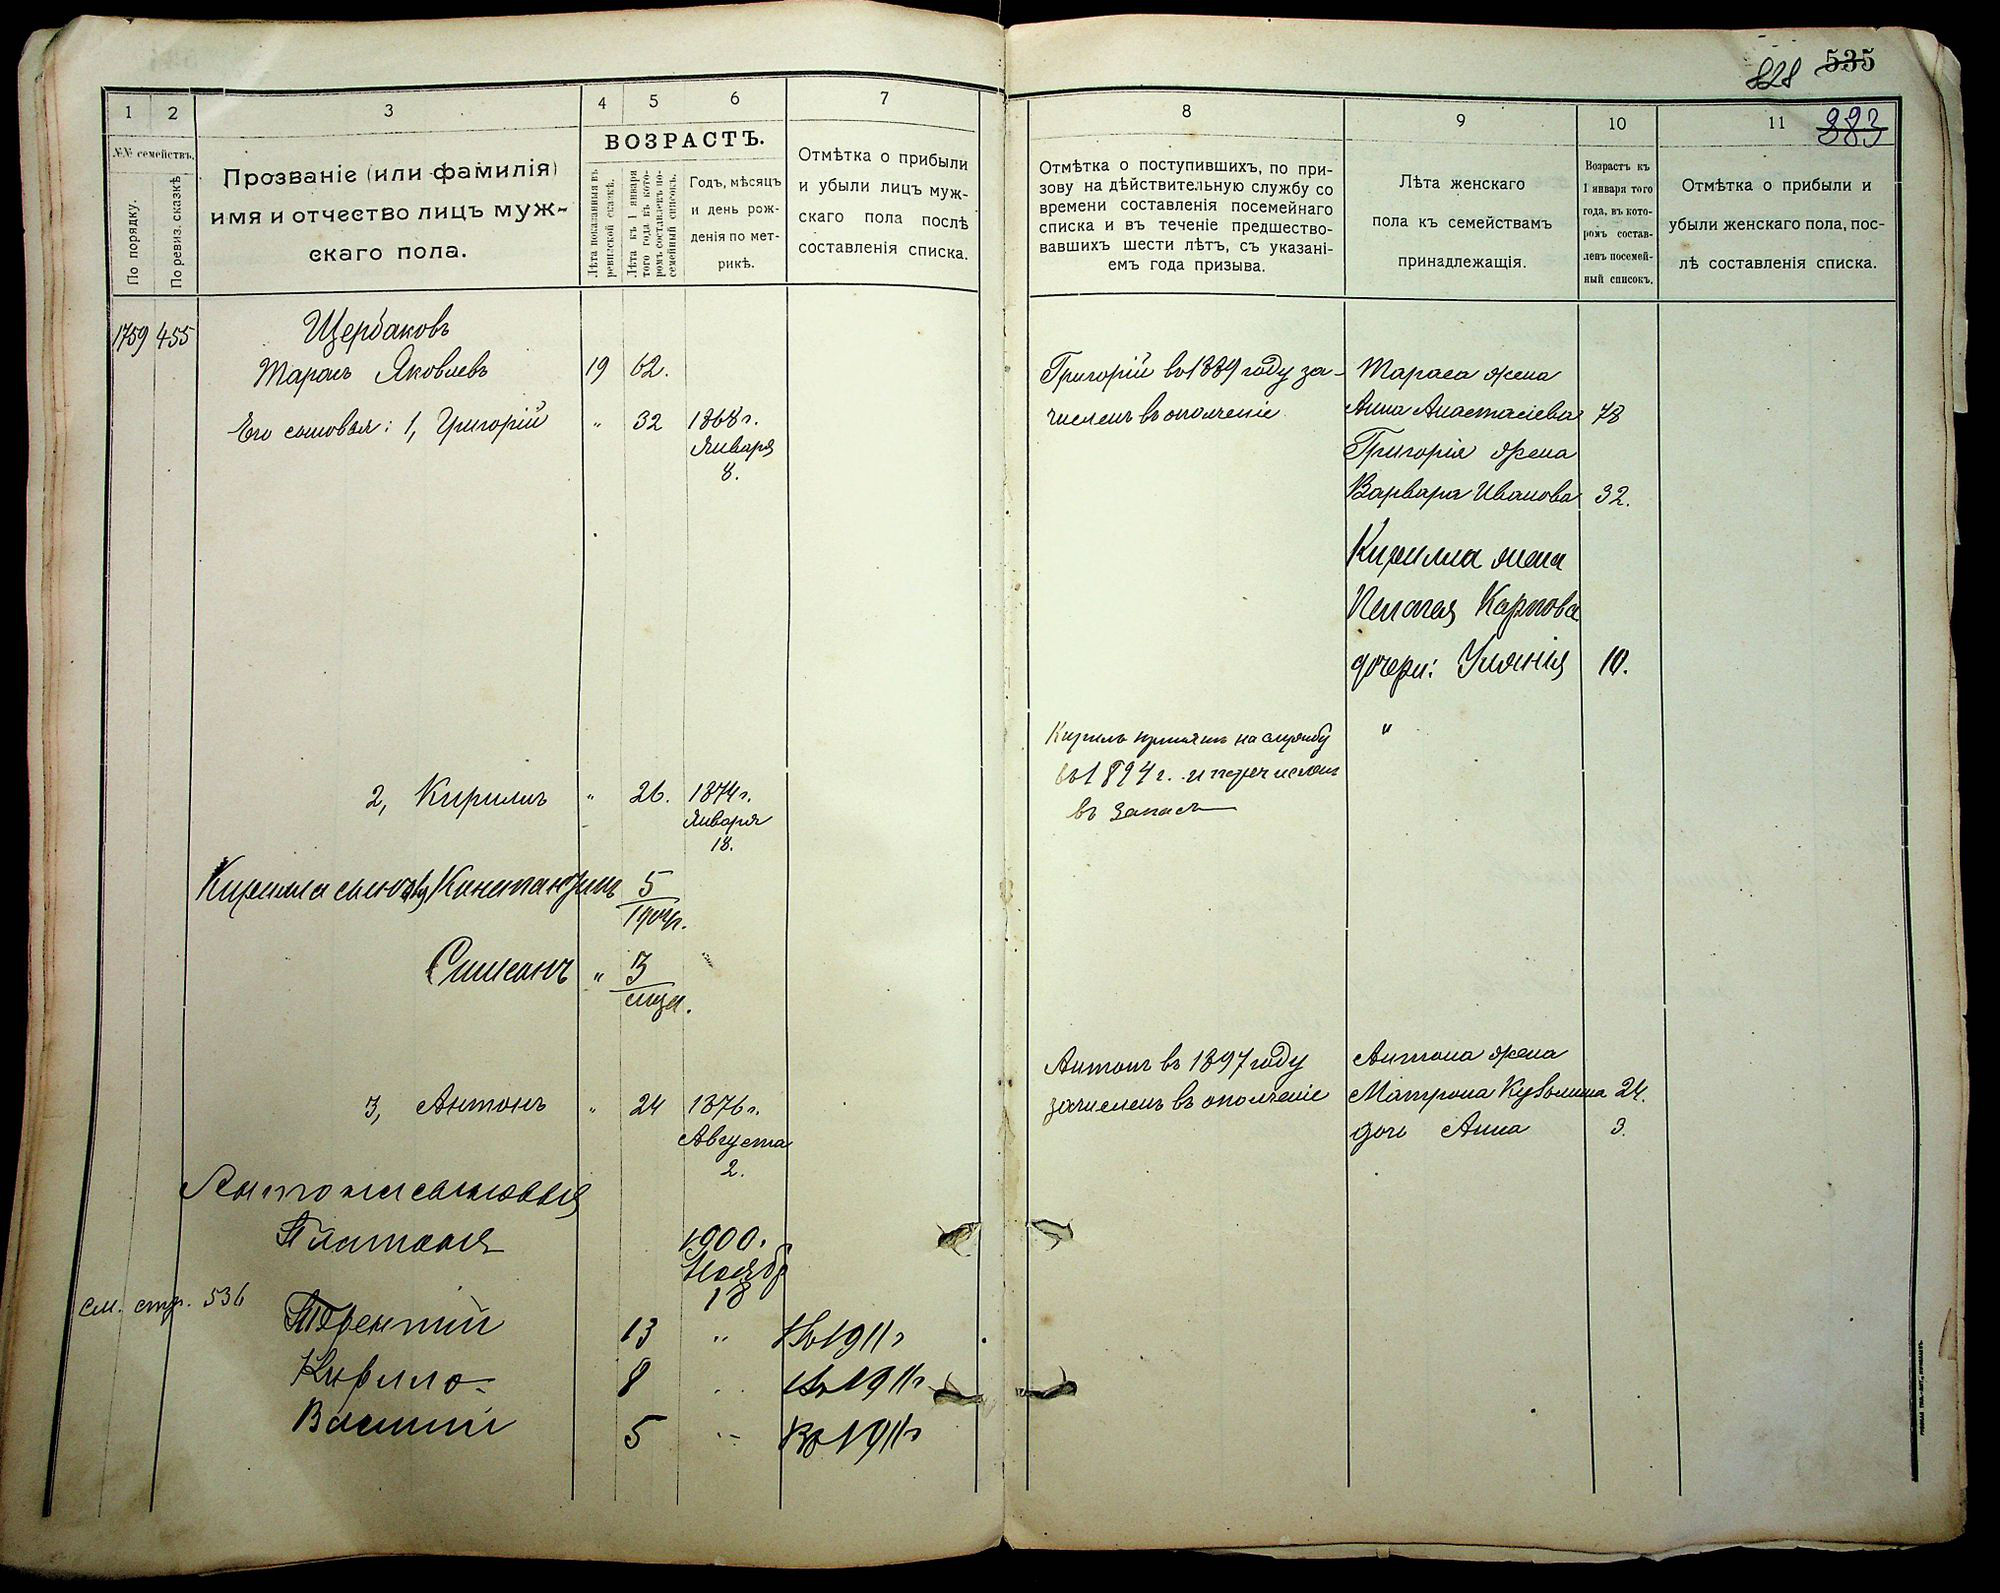 535
828
383
1
2
3
4
5
6
7
№№ семействъ.
По порядку.
По ревиз. сказкѣ
Прозваніе (или фамилія)
имя и отчество лицъ муж-
скаго пола.
ВОЗРАСТЪ.
Лѣта показанныя въ
ревизской сказкѣ.
Лѣта къ 1 января
того года въ кото-
ромъ составленъ по-
семейный списокъ.
Годъ, мѣсяцъ
и день рож-
денія по мет-
рикѣ.
Отмѣтка о прибыли
и убыли лицъ муж-
скаго пола послѣ
составленія списка.
1759 455
Щербаковъ
Тарасъ Яковлевъ 19 62.
Его сыновья: 1, Григорій " 32 1868 г.
Января
8.
2, Кириллъ " 26. 1874 г.
Января
18.
Кирилла сыновья 5
1904 г.
Симеонъ " 3
3, Антонъ " 24 1876 г.
Августа
2.
Антона сыновья
1900.
Ноябр
18
см. стр. 536
Терентий 13 " Въ 1911 г
Кирило 8 Въ 1911 г
Василий 5 Въ 1911 г
8
9
10
11
Отмѣтка о поступившихъ, по при-
зову на дѣйствительную службу со
времени составленія посемейнаго
списка и въ теченіе предшество-
вавшихъ шести лѣтъ, съ указані-
емъ года призыва.
Лѣта женскаго
пола къ семействамъ
принадлежащія.
Возрастъ къ
1 января того
года, въ кото-
ромъ состав-
ленъ посемей-
ный списокъ.
Отмѣтка о прибыли и
убыли женскаго пола, пос-
лѣ составленія списка.
Григорій въ 1889 году за-
численъ въ ополченіе
Тараса жена
Анна Анастасіева 78
Григорія жена
Варвара Иванова 32.
Кирилла жена
Карпова
дочери: Уляния 10.
"
Кирилъ принятъ на службу
въ 1894 г. и перечисленъ
въ запасъ
Антонъ въ 1897 году
зачисленъ въ ополченіе
Антона жена
Матрона Кузьмина 24.
дочь Анна 3.